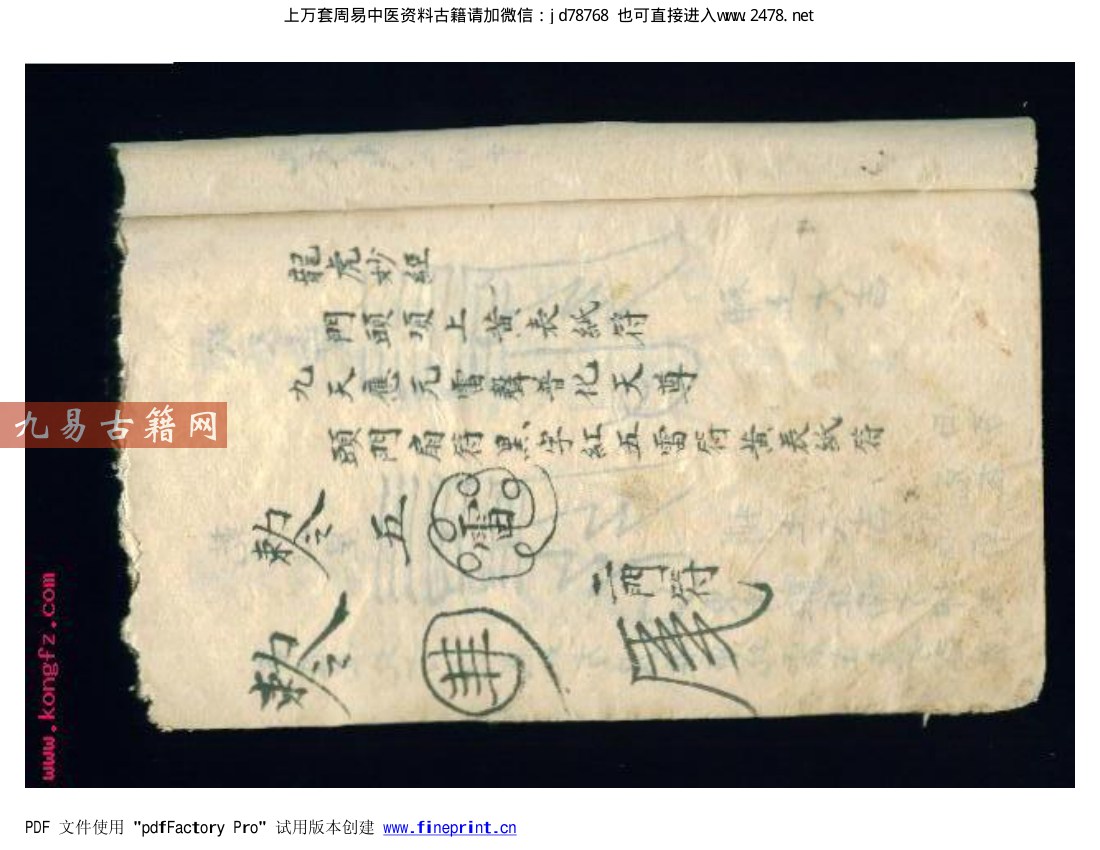 上万套周易中医资料古籍请加微信：jd78768 也可直接进入www.2478.net
龍虎妙經
門頭項上黃表紙符
九天應元雷聲普化天尊
頭門扇符黑字紅五雷符黃表紙符
敕令 五雷
敕令
二門符
九易古籍网
www.kongfz.com
PDF 文件使用 "pdfFactory Pro" 试用版本创建 www.fineprint.cn